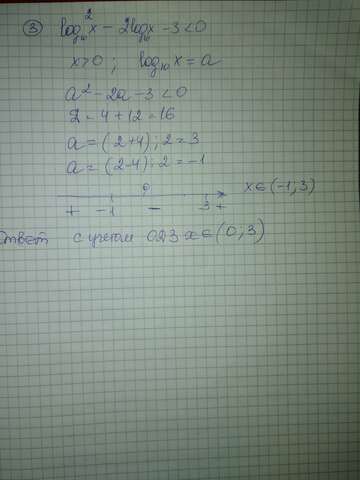 ③ log₁₀²x - 2log₁₀x - 3 < 0
x>0 ; log₁₀x = a
a² - 2a - 3 < 0
D = 4 + 12 = 16
a = (2+4):2 = 3
a = (2-4):2 = -1
0 x∈(-1;3)
+ -1 - 3 +
Ответ с учетом ОДЗ x∈(0;3)